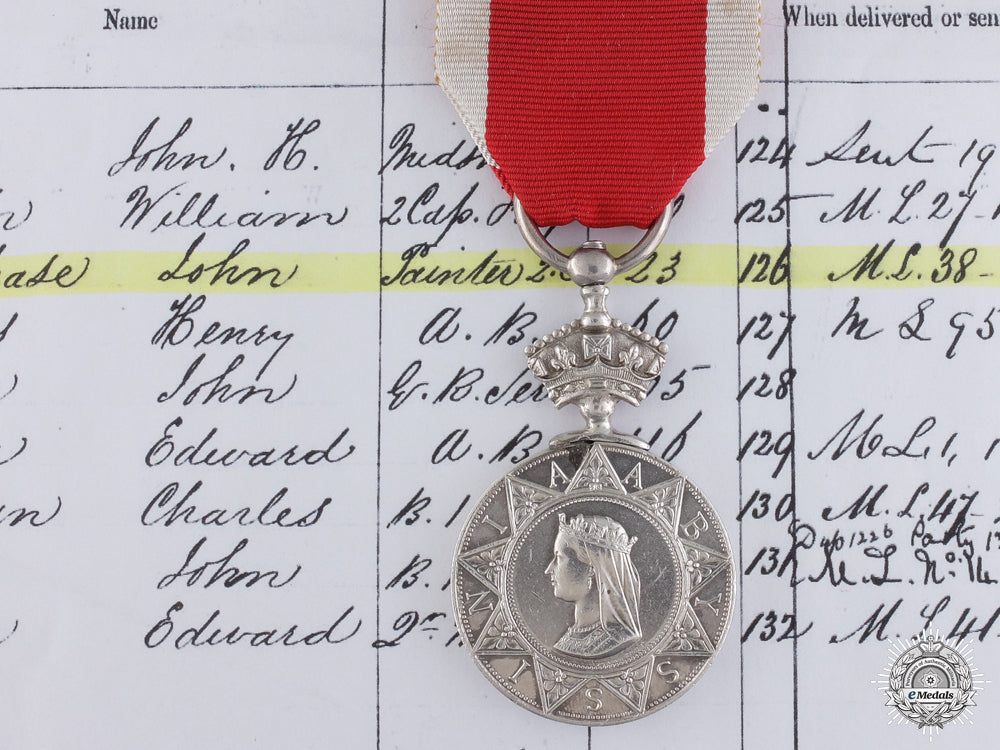 Name When delivered or sen
John. H. Mids 124 Sent 19
William 2 Cap. 125 M. L. 27-
ase John Painter 2. 23 126 M. L. 38-
Henry A. B 60 127 M L 95
John G. B. Ser 5 128
Edward A. B 46 129 M L 1, 1
un Charles B. 1 130 M. L. 47-
John B. 131 M. L. No. 14
Edward 2nr 132 M. L. 41
ABYSSINIA
eMedals